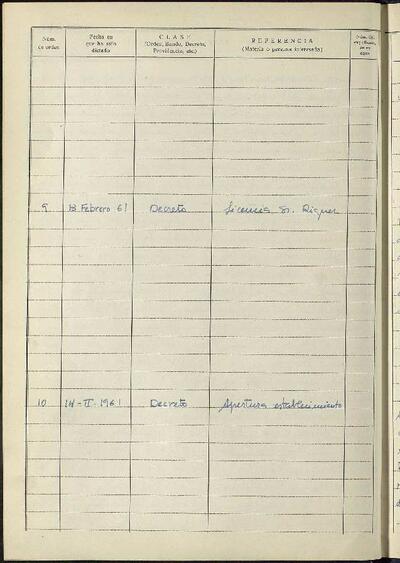 Núm. de orden
Fecha en que ha sido dictado
CLASE (Orden, Bando, Decreto, Providencia, etc.)
REFERENCIA (Materia o persona interesada)
9 13 Febrero 61 Decreto Licencia Sr. Riquer
10 14-II-1961 Decreto Apertura establecimiento